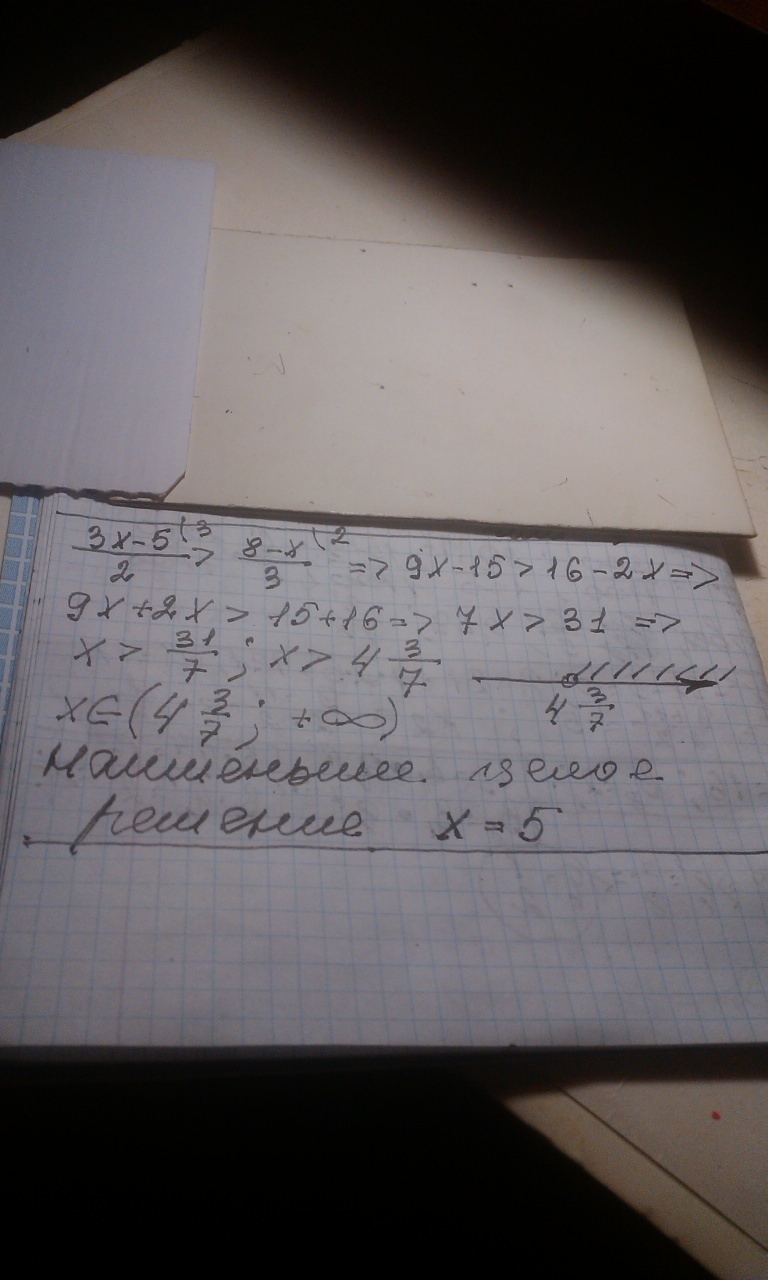 (3x-5)/2 (3 > (8-x)/3 (2 => 9x-15 > 16-2x =>
9x+2x > 15+16 => 7x > 31 =>
x > 31/7; x > 4 3/7
4 3/7
x∈(4 3/7; +∞)
Наименьшее целое
решение x = 5